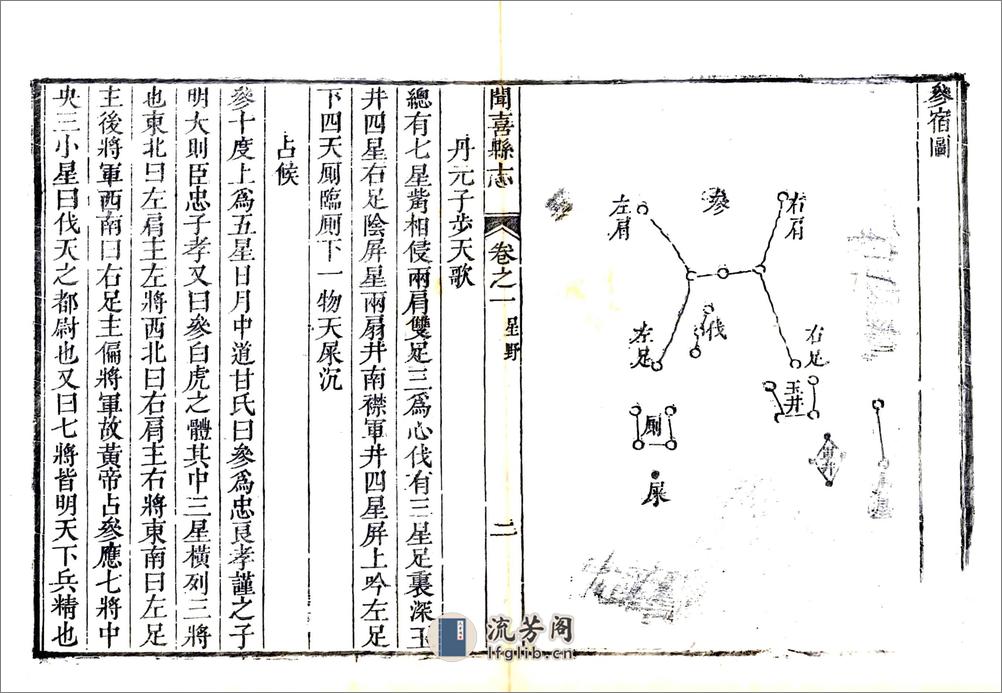 參宿圖
右肩
參
左肩
伐
右足
左足
玉井
厠
軍井
屎
聞喜縣志
卷之一
星野
二
丹元子步天歌
總有七星觜相侵兩肩雙足三爲心伐有三星足裏深玉
井四星右足陰屏星兩扇井南襟軍井四星屏上吟左足
下四天厠臨厠下一物天屎沉
占候
參十度上爲五星日月中道甘氏曰參爲忠良孝謹之子
明大則臣忠子孝又曰參白虎之體其中三星橫列三將
也東北曰左肩主左將西北曰右肩主右將東南曰左足
主後將軍西南曰右足主偏將軍故黃帝占參應七將中
央三小星曰伐天之都尉也又曰七將皆明天下兵精也
流芳阁
lfglib.cn